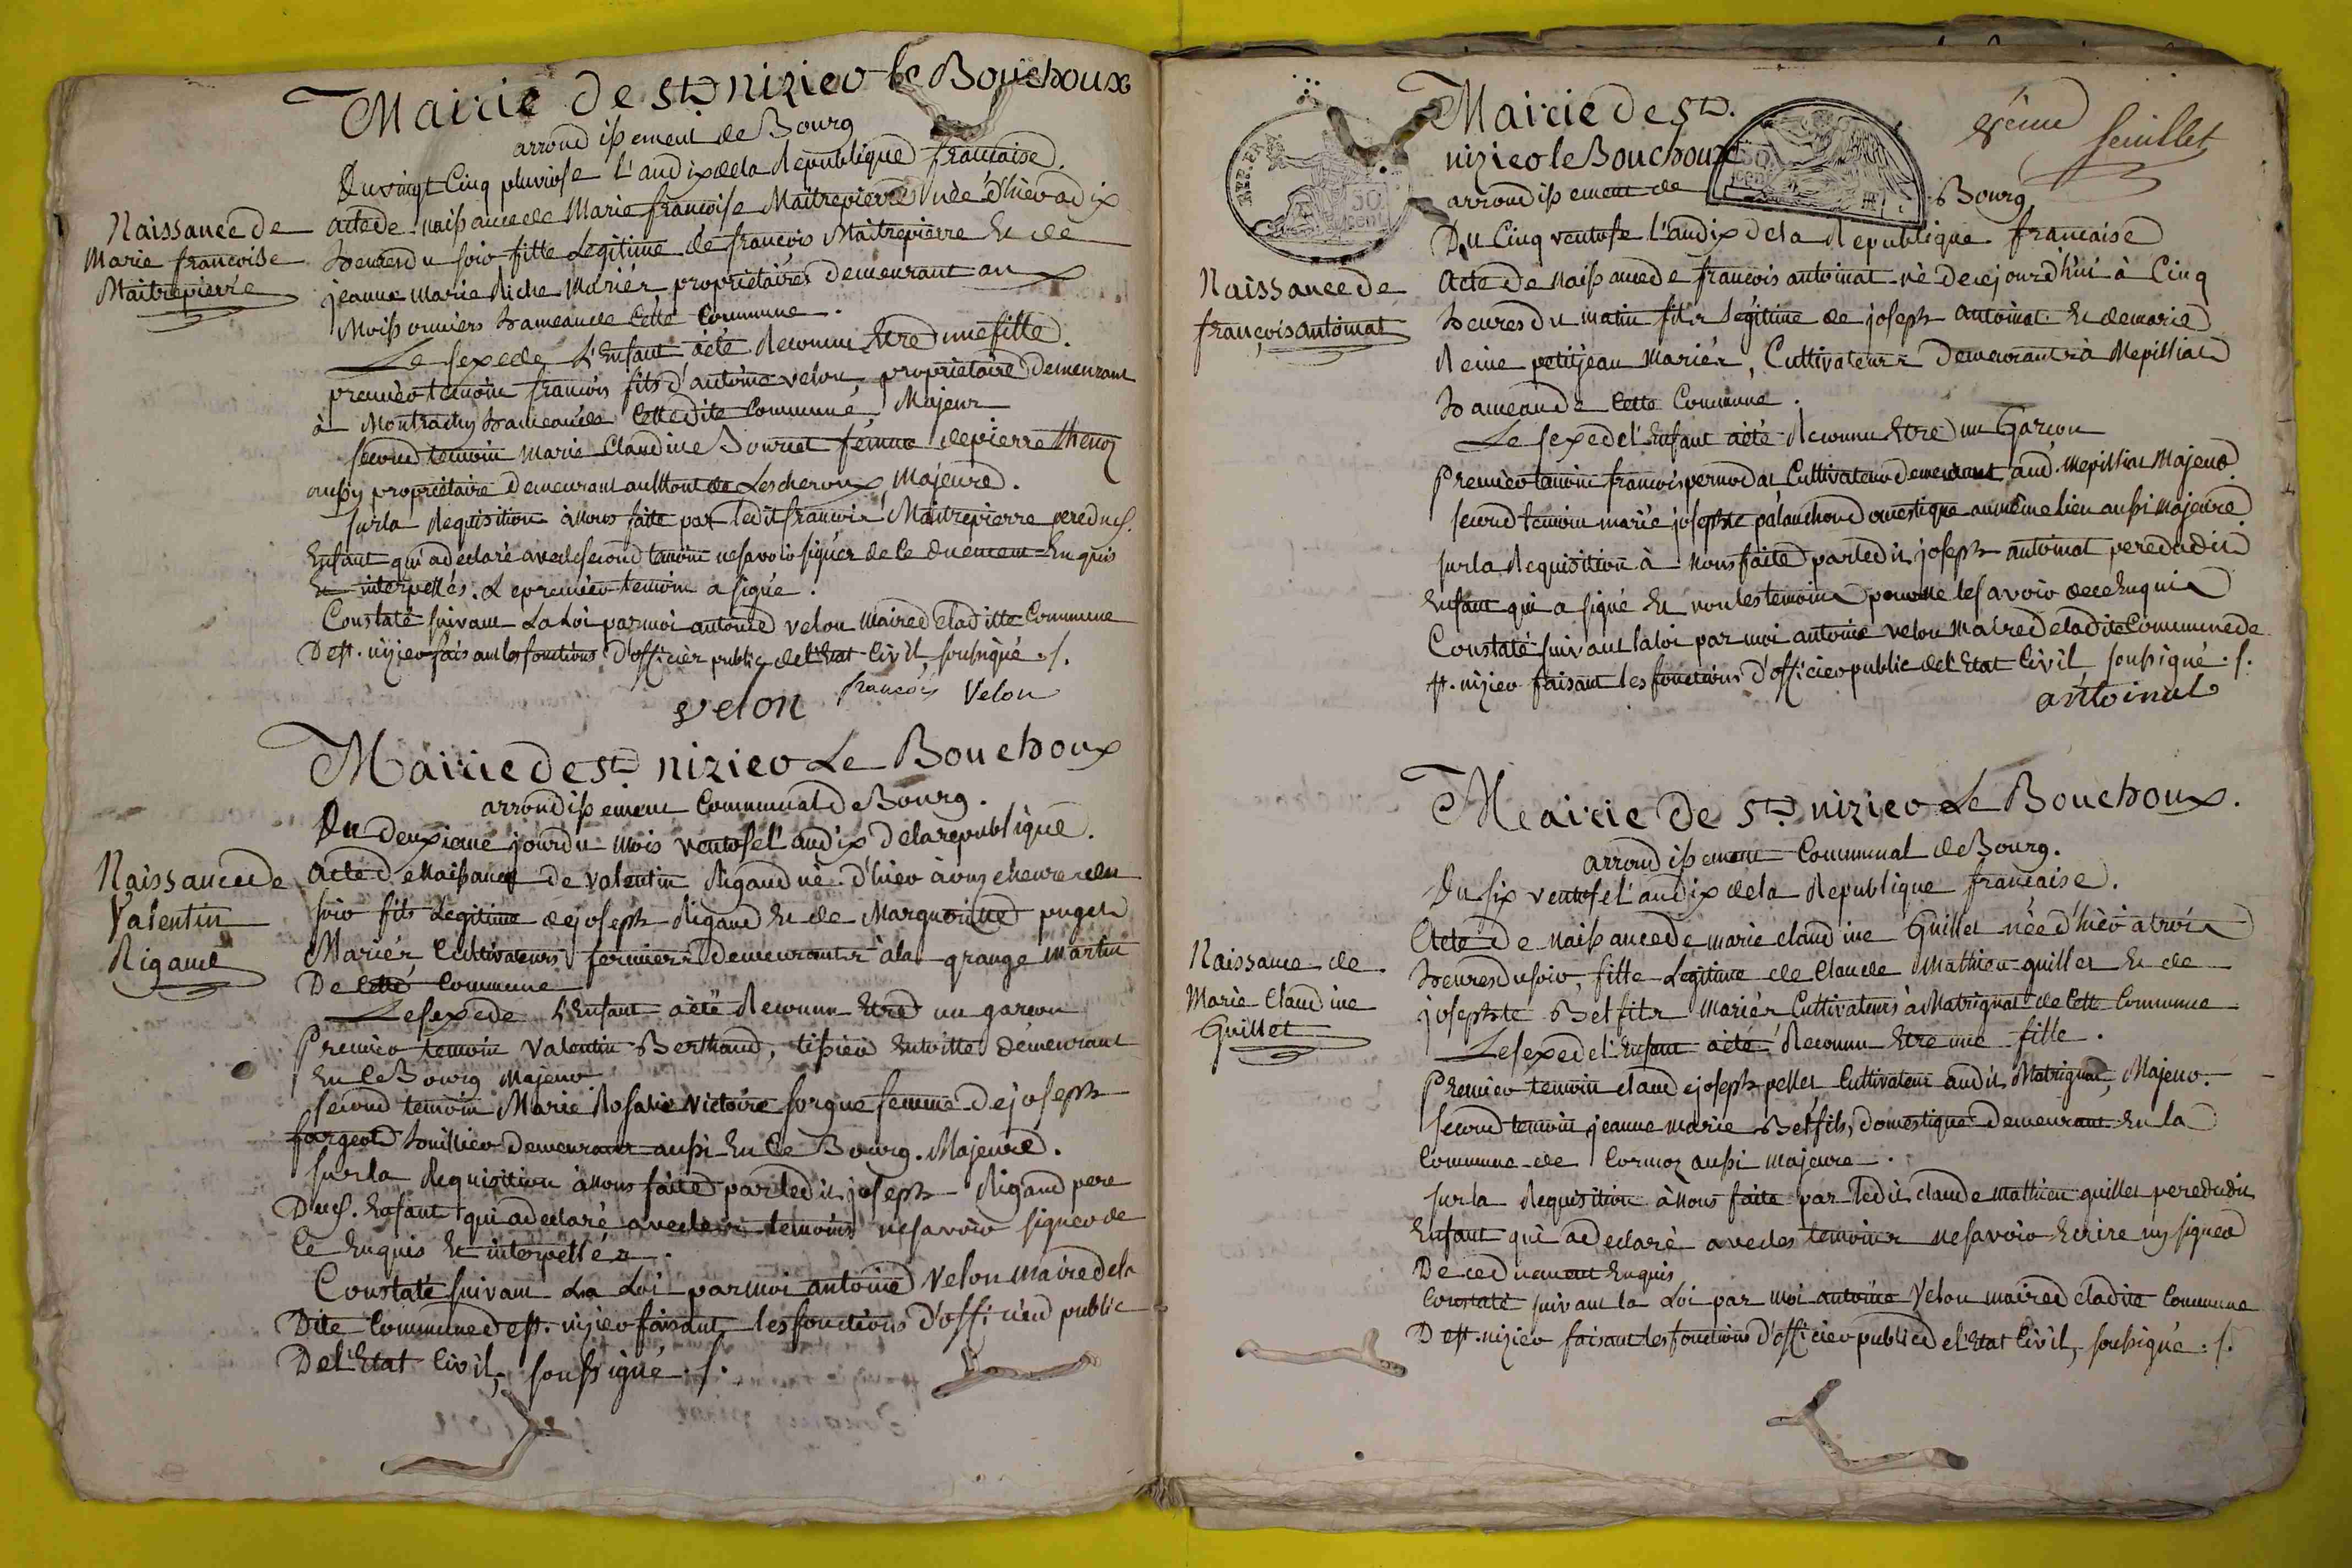 Mairie de St nizier le Bouchoux
arrondissement de Bourg
Du vingt Cinq pluviose l'an dix de la Republique francaise.
Naissance de
Marie francoise
Maitrepierre
acte de naissance de Marie francoise Maitrepierre née d'hier a dix
heures du soir fille Legitime de francois Maitrepierre Et de
jeanne marie Riche Mariés proprietaires demeurant au
Moissonniers hameau de Cette Commune.
Le sexe de L'Enfant a été Reconnu Etre d'une fille.
premier temoin francois fils d'antoine velon, proprietaire demeurant
à Montrachy hameau de Cettedite Commune, Majeur
second temoin marie Claudine Bournet femme de pierre thenoz
aussy proprietaire demeurant au Mont de Lescheroux, Majeure.
sur la Requisition à Nous faite par ledit francois Maitrepierre pere dud.
Enfant qui a declaré avec le second temoin ne savoir signer de Ce duement Enquis
Et interpellés. Le premier temoin a signé.
Constaté suivant La Loi par moi antoine velon maire de la ditte Commune
De st. nizier faisant les fonctions d'officier public de l'Etat Civil, soussigné ./.
velon francois Velon
Mairie de St nizier Le Bouchoux
arrondissement Communal de Bourg.
Du deuxieme jour du mois ventose l'an dix de la republique.
Naissance de
Valentin
Rigaud
acte de Naissance de valentin Rigaud né d'hier à onze heures du
soir fils Legitime de joseph Rigaud Et de Marguerite puget
Mariés Cultivateurs fermiers demeurants à la grange Martin
De Cette Commune
Le sexe de L'Enfant a été Reconnu Etre un garcon
Premier temoin valentin Berthaud, tissier Entoille demeurant
En Ce Bourg Majeur
second temoin Marie Rosalie Victoire sorgue femme de joseph
fargeot huillier demeurant aussi En Ce Bourg. Majeure.
sur la Requisition à Nous faite par ledit joseph Rigaud pere
Dud. Enfant qui a declaré avec les temoins ne savoir signer de
Ce Enquis Et interpellés.
Constaté suivant La Loi par moi antoine Velon maire de la
Dite Commune de st. nizier faisant les fonctions d'officier public
De l'Etat Civil, soussigné ./.
Mairie de St.
nizier le Bouchoux
8eme feuillet
arrondissement de Bourg
Du Cinq ventose l'an dix de la Republique francaise
Naissance de
françois antoinat
Acte de Naissance de francois antoinat né de cejourd'hui à Cinq
heures du matin fils légitime de joseph antoinat Et de marie
Reine petitjean Mariés, Cultivateurs demeurants à Mepilliat
hameau de Cette Commune.
Le sexe de l'Enfant a été Reconnu Etre un Garcon
Premier temoin francois pernodat Cultivateur demeurant aud. Mepilliat Majeur
second temoin marie josephte palanchon domestique au même lieu aussi Majeure
sur la Requisition à Nous faite par ledit joseph antoinat pere dudit
Enfant qui a signé Et non les temoins pour ne le savoir de ce Enquis
Constaté suivant la loi par moi antoine velon Maire de la dite Commune de
st. nizier faisant les fonctions d'officier public de l'Etat Civil soussigné ./.
antoinat
Mairie de St nizier Le Bouchoux.
arrondissement Communal de Bourg.
Du six ventose l'an dix de la Republique française.
Naissance de
Marie Claudine
Guillet
Acte de Naissance de marie claudine Guillet née d'hier a trois
heures du soir, fille Legitime de Claude Mathieu guillet Et de
josephte Belfils Mariés Cultivateurs à Matrignat de Cette Commune
Le sexe de l'Enfant a été Reconnu Etre une fille.
Premier temoin claude joseph pellet Cultivateur audit Matrignat, Majeur.
second temoin jeanne marie Belfils, domestique demeurant En la
Commune de Cormoz aussi majeure.
sur la Requisition à Nous faite par ledit claude mathieu guillet pere dudit
Enfant qui a declaré avec les temoins ne savoir Ecrire ny signer
De ce duement Enquis
Constaté suivant la Loi par moi antoine Velon maire de la dite Commune
De st. nizier faisant les fonctions d'officier public de l'Etat Civil, soussigné ./.